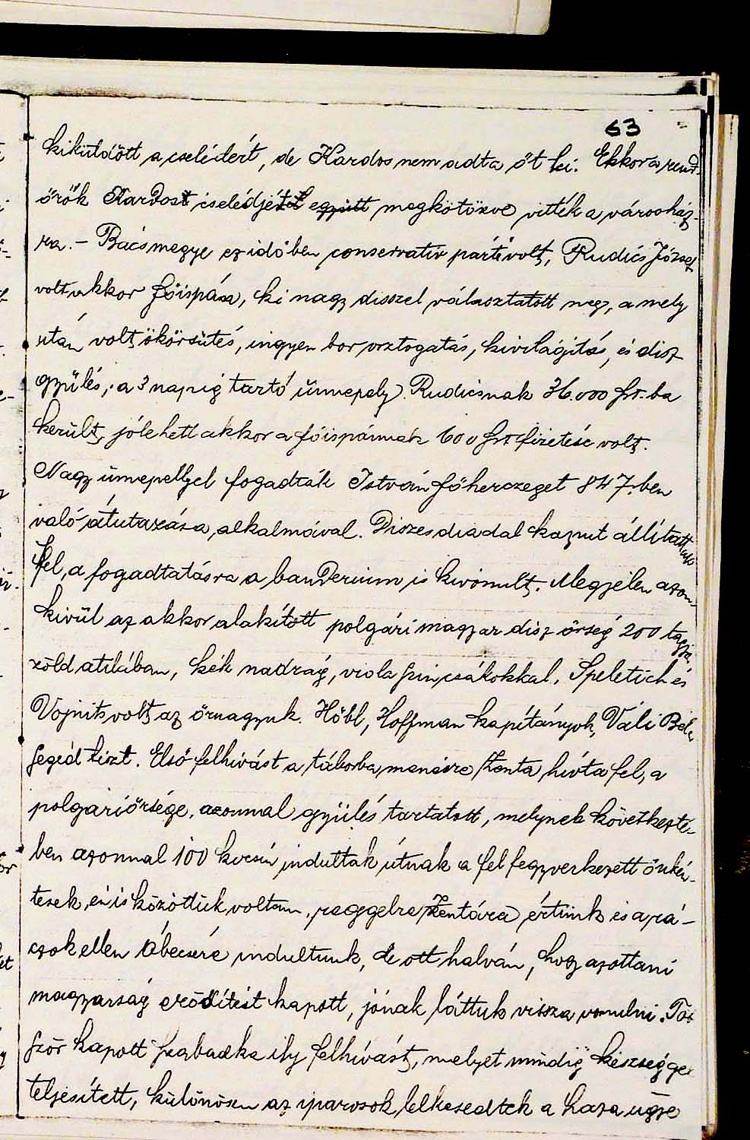 63
kiküldött a cselédért, de Kardos nem adta őt ki. Ekkor a rend-
őrök Kardost, cselédjétől együtt megkötözve vitték a városház-
ra. – Bácsmegye ez időben conservativ párti volt, Rudics József
volt akkor főispánja, ki nagy disszel választatott meg, a mely
után volt ökörsütés, ingyen bor osztogatás, kivilágítás, és disz
gyülés, a 3 napig tartó ünnepely Rudicsnak 36.000 frt.-ba
került, jólehett akkor a főispánnak 600 frt fizetése volt.
Nagy ünnepellyel fogadták István főherczeget 847.-ben
való átutazása, alkalmával. Diszes diadal kaput állítottak
fel, a fogadtatásra a banderium is kivonult. Megjelen azon-
kivül az akkor alakított polgári magyar disz őrség 200 tagja,
zöld atilában, kék nadrág, viola szin csákokkal. Speletich és
Vojnits volt az őrnagyuk. Höbl, Hoffman kapitányok, Váli Béla
segéd tiszt. Első felhivást a táborba menésre Zenta hívta fel, a
polgári őrsége, azonnal gyülés tartatott, melynek következté-
ben azonnal 100 kocsin indultak útnak a fel fegyverkezett önkén-
tesek, én is közöttük voltam, reggelre Zentára értünk és a rá-
czok ellen Óbecsére indultunk, de ott halván, hogy azottani
magyarság erődítést kapott, jónak láttuk vissza vonulni. Töb-
ször kapott Szabadka ily felhívást, melyet mindig készséggel
teljesített, különösen az iparosok lelkesedtek a haza ügye